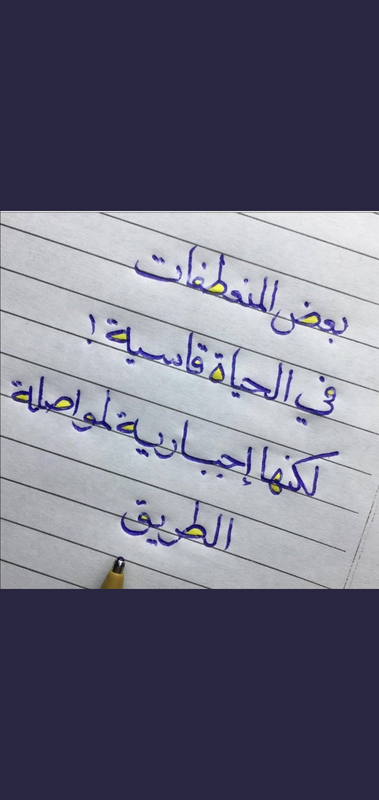 بعض المنعطفات
في الحياة قاسية !
لكنها إجبارية لمواصلة
الطريق